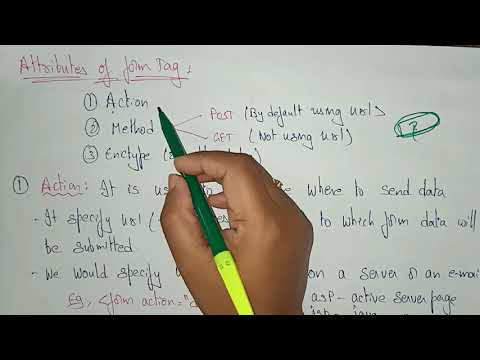 Attributes of form Tag:
① Action
② Method
POST (By default using url)
GET (Not using url)
?
③ Enctype
① Action: It is where to send data
- It specify url ( to which form data will
be submitted
- We would specify on a server or an e-mail
Eg: <form action="
asp - active server page